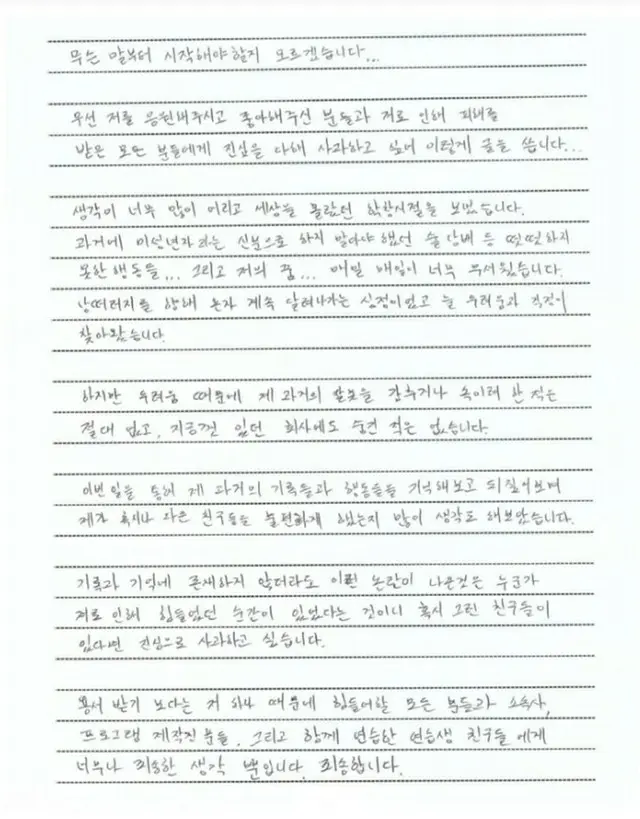 무슨 말부터 시작해야할지 모르겠습니다...
우선 저를 응원해주시고 좋아해주신 분들과 저로 인해 피해를
받은 모든 분들에게 진심을 다해 사과하고 싶어 이렇게 글을 씁니다...
생각이 너무 많이 어리고 세상을 몰랐던 학창시절을 보냈습니다.
과거에 미성년자라는 신분으로 하지 말아야 했던 술 담배 등 떳떳하지
못한 행동들... 그리고 저의 꿈... 매일 매일이 너무 무서웠습니다.
낭떠러지를 향해 혼자 계속 달려나가는 심정이었고 늘 두려움과 걱정이
찾아왔습니다.
하지만 두려움 때문에 제 과거의 잘못을 감추거나 속이려 한 적은
절대 없고, 지금껏 있던 회사에도 숨긴 적은 없습니다.
이번 일을 통해 제 과거의 기록들과 행동들을 기억해보고 되짚어보며
제가 혹시나 다른 친구들을 불편하게 했는지 많이 생각도 해보았습니다.
기록과 기억에 존재하지 않더라도 이런 논란이 나온것은 누군가
저로 인해 힘들었던 순간이 있었다는 것이니 혹시 그런 친구들이
있다면 진심으로 사과하고 싶습니다.
용서 받기 보다는 저 하나 때문에 힘들어할 모든 분들과 소속사,
프로그램 제작진분들, 그리고 함께 연습한 연습생 친구들 에게
너무나 죄송한 생각 뿐입니다. 죄송합니다.